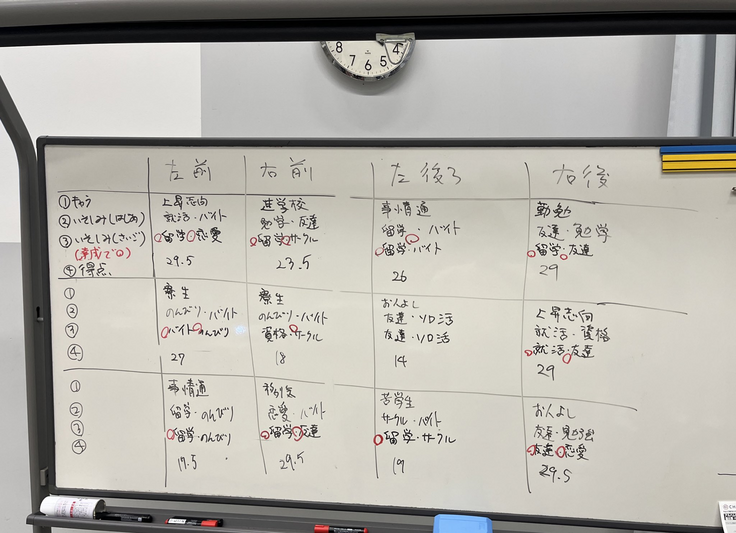 8 7 6 5 4
左前 右前 左後ろ 右後
①きゅう 上昇志向 進学校 事情通 勤勉
②いそしみ(はじめ) 就活・バイト 勉学・友達 留学・バイト 友達・勉学
③いそしみ(さいご) 留学・恋愛 留学・サークル 留学・バイト 留学・友達
(達成で○)
④得点 29.5 23.5 26 29
① 寮生 寮生 おんよし 上昇志向
② のんびり・バイト のんびり・バイト 友達・ソロ活 就活・資格
③ バイト・のんびり 資格・サークル 友達・ソロ活 就活・友達
④ 27 18 14 29
① 事情通 苦学生 お人よし
② 留学・のんびり 恋愛・バイト サークル・バイト 友達・勉強
③ 留学・のんびり 留学・友達 留学・サークル 友達・恋愛
④ 17.5 29.5 19 29.5